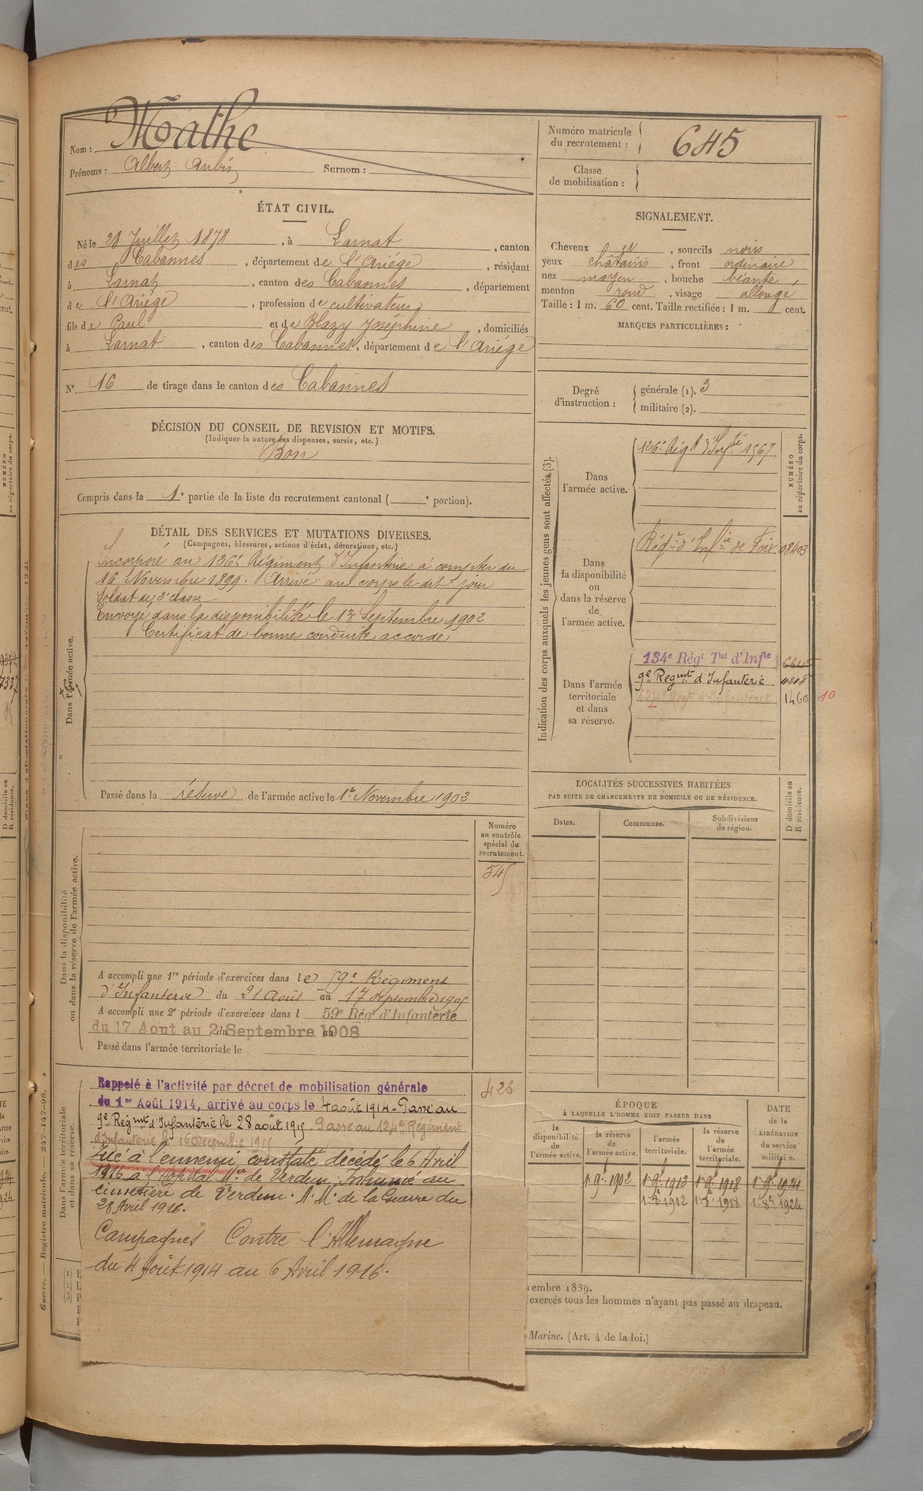 Nom : Mathe
Prénoms : Albert Aubin Surnom :
Numéro matricule du recrutement : 645
Classe de mobilisation :
ÉTAT CIVIL.
Né le 21 Juillet 1878, à Larnat, canton
des Cabannes, département de l'Ariège, résidant
à Larnat, canton des Cabannes, département
de l'Ariège, profession de cultivateur
fils de Paul et de Blazy Joséphine, domiciliés
à Larnat, canton des Cabannes, département de l'Ariège
N° 16 de tirage dans le canton des Cabannes
SIGNALEMENT.
Cheveux, sourcils noirs
yeux châtains, front ordinaire
nez moyen, bouche béante,
menton rond, visage allongé
Taille : 1 m. 60 cent. Taille rectifiée : 1 m. cent.
MARQUES PARTICULIÈRES :
Degré d'instruction : générale (1). 3
militaire (2).
DÉCISION DU CONSEIL DE REVISION ET MOTIFS.
(Indiquer la nature des dispenses, sursis, etc.)
Bon
Compris dans la 1e partie de la liste du recrutement cantonal ( e portion).
DÉTAIL DES SERVICES ET MUTATIONS DIVERSES.
(Campagnes, blessures, actions d'éclat, décorations, etc.)
Dans l'armée active.
Incorporé au 136e Régiment d'Infanterie à compter du
16 Novembre 1899. Arrivé au corps le dit jour
Soldat de 2e classe
Envoyé dans la disponibilité le 17 Septembre 1902
Certificat de bonne conduite accordé
Passé dans la réserve de l'armée active le 1er Novembre 1902
Indication des corps auxquels les jeunes gens sont affectés (3).
NUMÉRO au répertoire du corps.
Dans l'armée active. 136e Régt d'Infie 1567
Dans la disponibilité ou dans la réserve de l'armée active. Régt d'Infie de Foix
Dans l'armée territoriale et dans sa réserve. 134e Régt Tal d'Infie
9e Régimt d'Infanterie
124e Régt d'Infanterie 1460 10
LOCALITÉS SUCCESSIVES HABITÉES
PAR SUITE DE CHANGEMENTS DE DOMICILE OU DE RÉSIDENCE.
Dates. Communes. Subdivisions de région. D domicile ou R résidence.
Dans la disponibilité ou dans la réserve de l'armée active.
Numéro au contrôle spécial du recrutement.
545
A accompli une 1re période d'exercices dans le 59e Régiment
d'Infanterie du 21 Août au 17 septembre 1905
A accompli une 2e période d'exercices dans l 59e Régt d'Infanterie
du 17 Aout au 2 Septembre 1908
Passé dans l'armée territoriale le
Dans l'armée territoriale et dans sa réserve.
Rappelé à l'activité par décret de mobilisation générale 426
du 1er Août 1914, arrivé au corps le 4 août 1914. Passé au
9e Régimt d'Infanterie le 28 août 1915 Passé au 124e Régiment
d'Infanterie le 16 Décembre 1915
Tué à l'ennemi constaté décédé le 6 Avril
1916 à l'Hôpital Mre de Verdun, Inhumé au
cimetière de Verdun. A. M. de la Guerre du
28 Avril 1916.
Campagnes Contre l'Allemagne
du 4 Août 1914 au 6 Avril 1916.
ÉPOQUE
À LAQUELLE L'HOMME DOIT PASSER DANS
la disponibilité de l'armée active. la réserve de l'armée active. l'armée territoriale. la réserve de l'armée territoriale.
DATE de la LIBÉRATION du service militaire.
1 9e 1902 1 9e 1912 1 9e 1918 1 9e 1924
1er 8e 1912 1er 8e 1918 1er 8e 1924
embre 1889.
exercés tous les hommes n'ayant pas passé au drapeau.
Marine. (Art. 4 de la loi.)
Guerre. — Registre matricule. — 247-147-98.